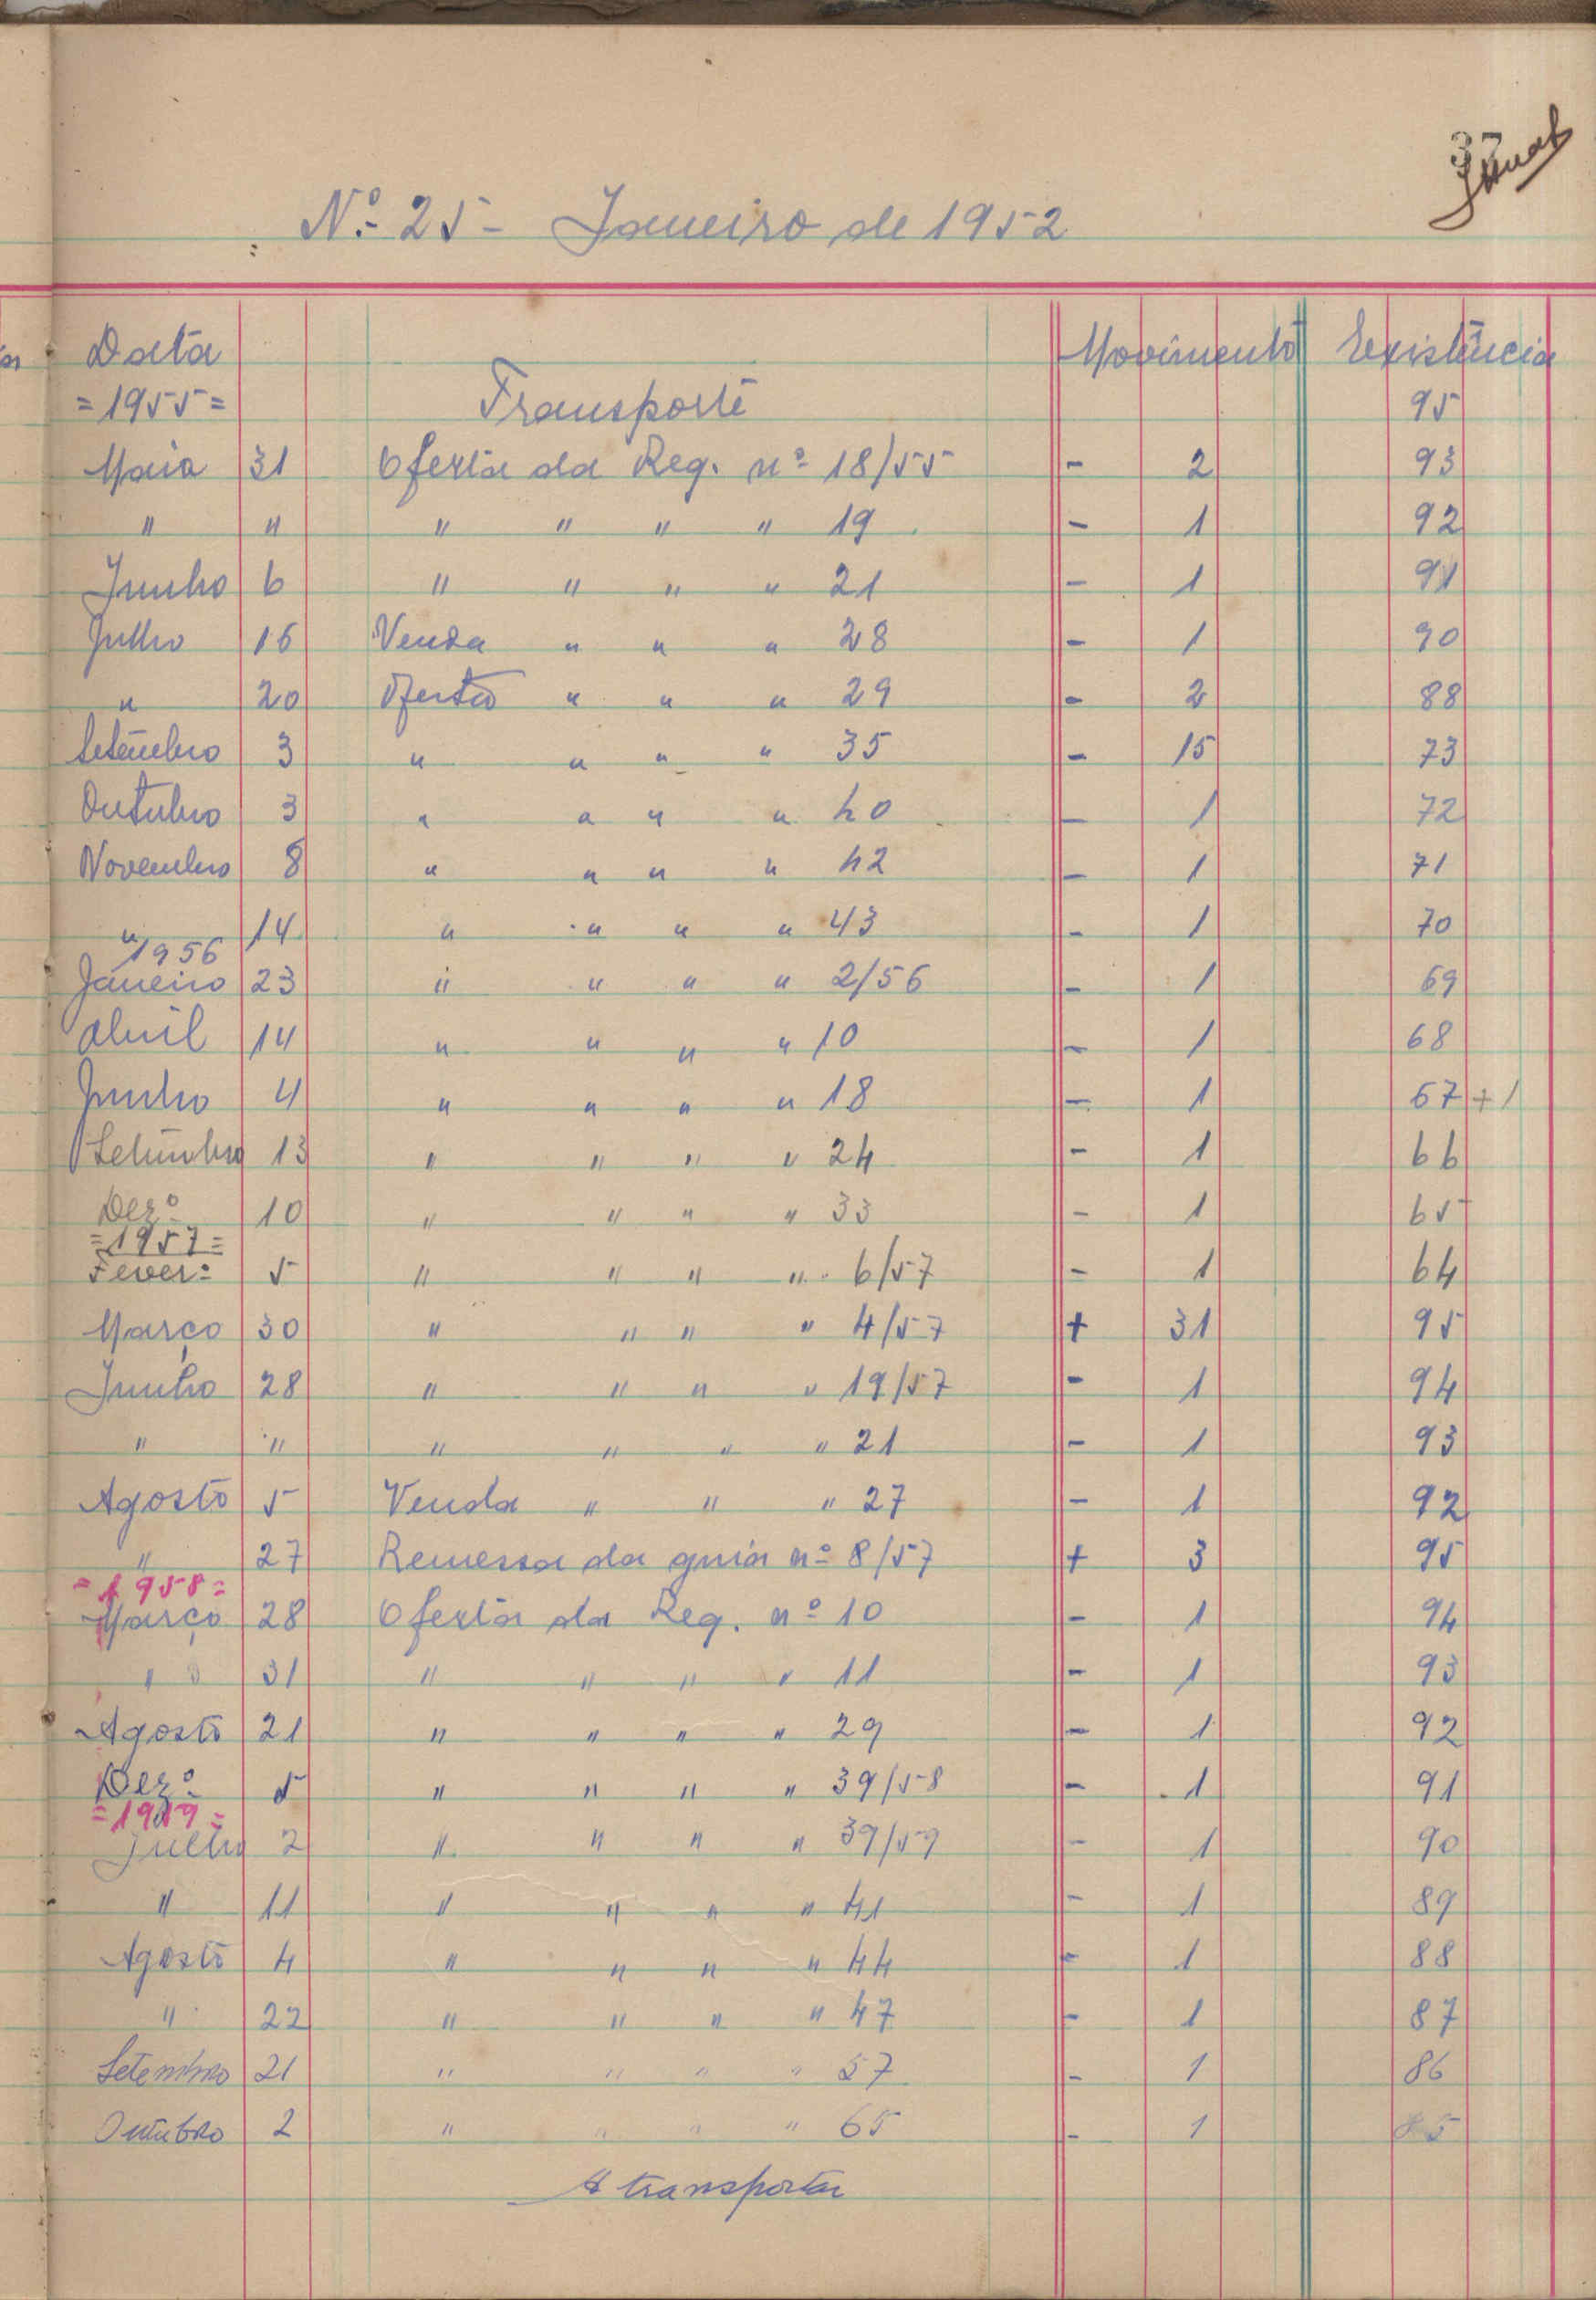 37
Nº 25 - Janeiro de 1952
Data Movimento Existência
=1955= Transporte 95
Maio 31 Oferta da Reg. nº 18/55 - 2 93
" " " " " " 19 - 1 92
Junho 6 " " " " 21 - 1 91
Julho 16 Venda " " " 28 - 1 90
" 20 Oferta " " " 29 - 2 88
Setembro 3 " " " " 35 - 15 73
Outubro 3 " " " " 40 - 1 72
Novembro 8 " " " " 42 - 1 71
" 14 " " " " 43 - 1 70
1956
Janeiro 23 " " " " 2/56 - 1 69
Abril 14 " " " " 10 - 1 68
Junho 4 " " " " 18 - 1 67 +1
Setembro 13 " " " " 24 - 1 66
Dezº 10 " " " " 33 - 1 65
=1957=
Feverº 5 " " " " 6/57 - 1 64
Março 30 " " " " 4/57 + 31 95
Junho 28 " " " " 19/57 - 1 94
" " " " " " 21 - 1 93
Agosto 5 Venda " " " 27 - 1 92
" 27 Remessa da guia nº 8/57 + 3 95
=1958=
Março 28 Oferta da Reg. nº 10 - 1 94
" 31 " " " " 11 - 1 93
Agosto 21 " " " " 29 - 1 92
Dezº 5 " " " " 39/58 - 1 91
=1959=
Julho 2 " " " " 39/59 - 1 90
" 11 " " " " 41 - 1 89
Agosto 4 " " " " 44 - 1 88
" 22 " " " " 47 - 1 87
Setembro 21 " " " " 57 - 1 86
Outubro 2 " " " " 65 - 1 85
A transportar